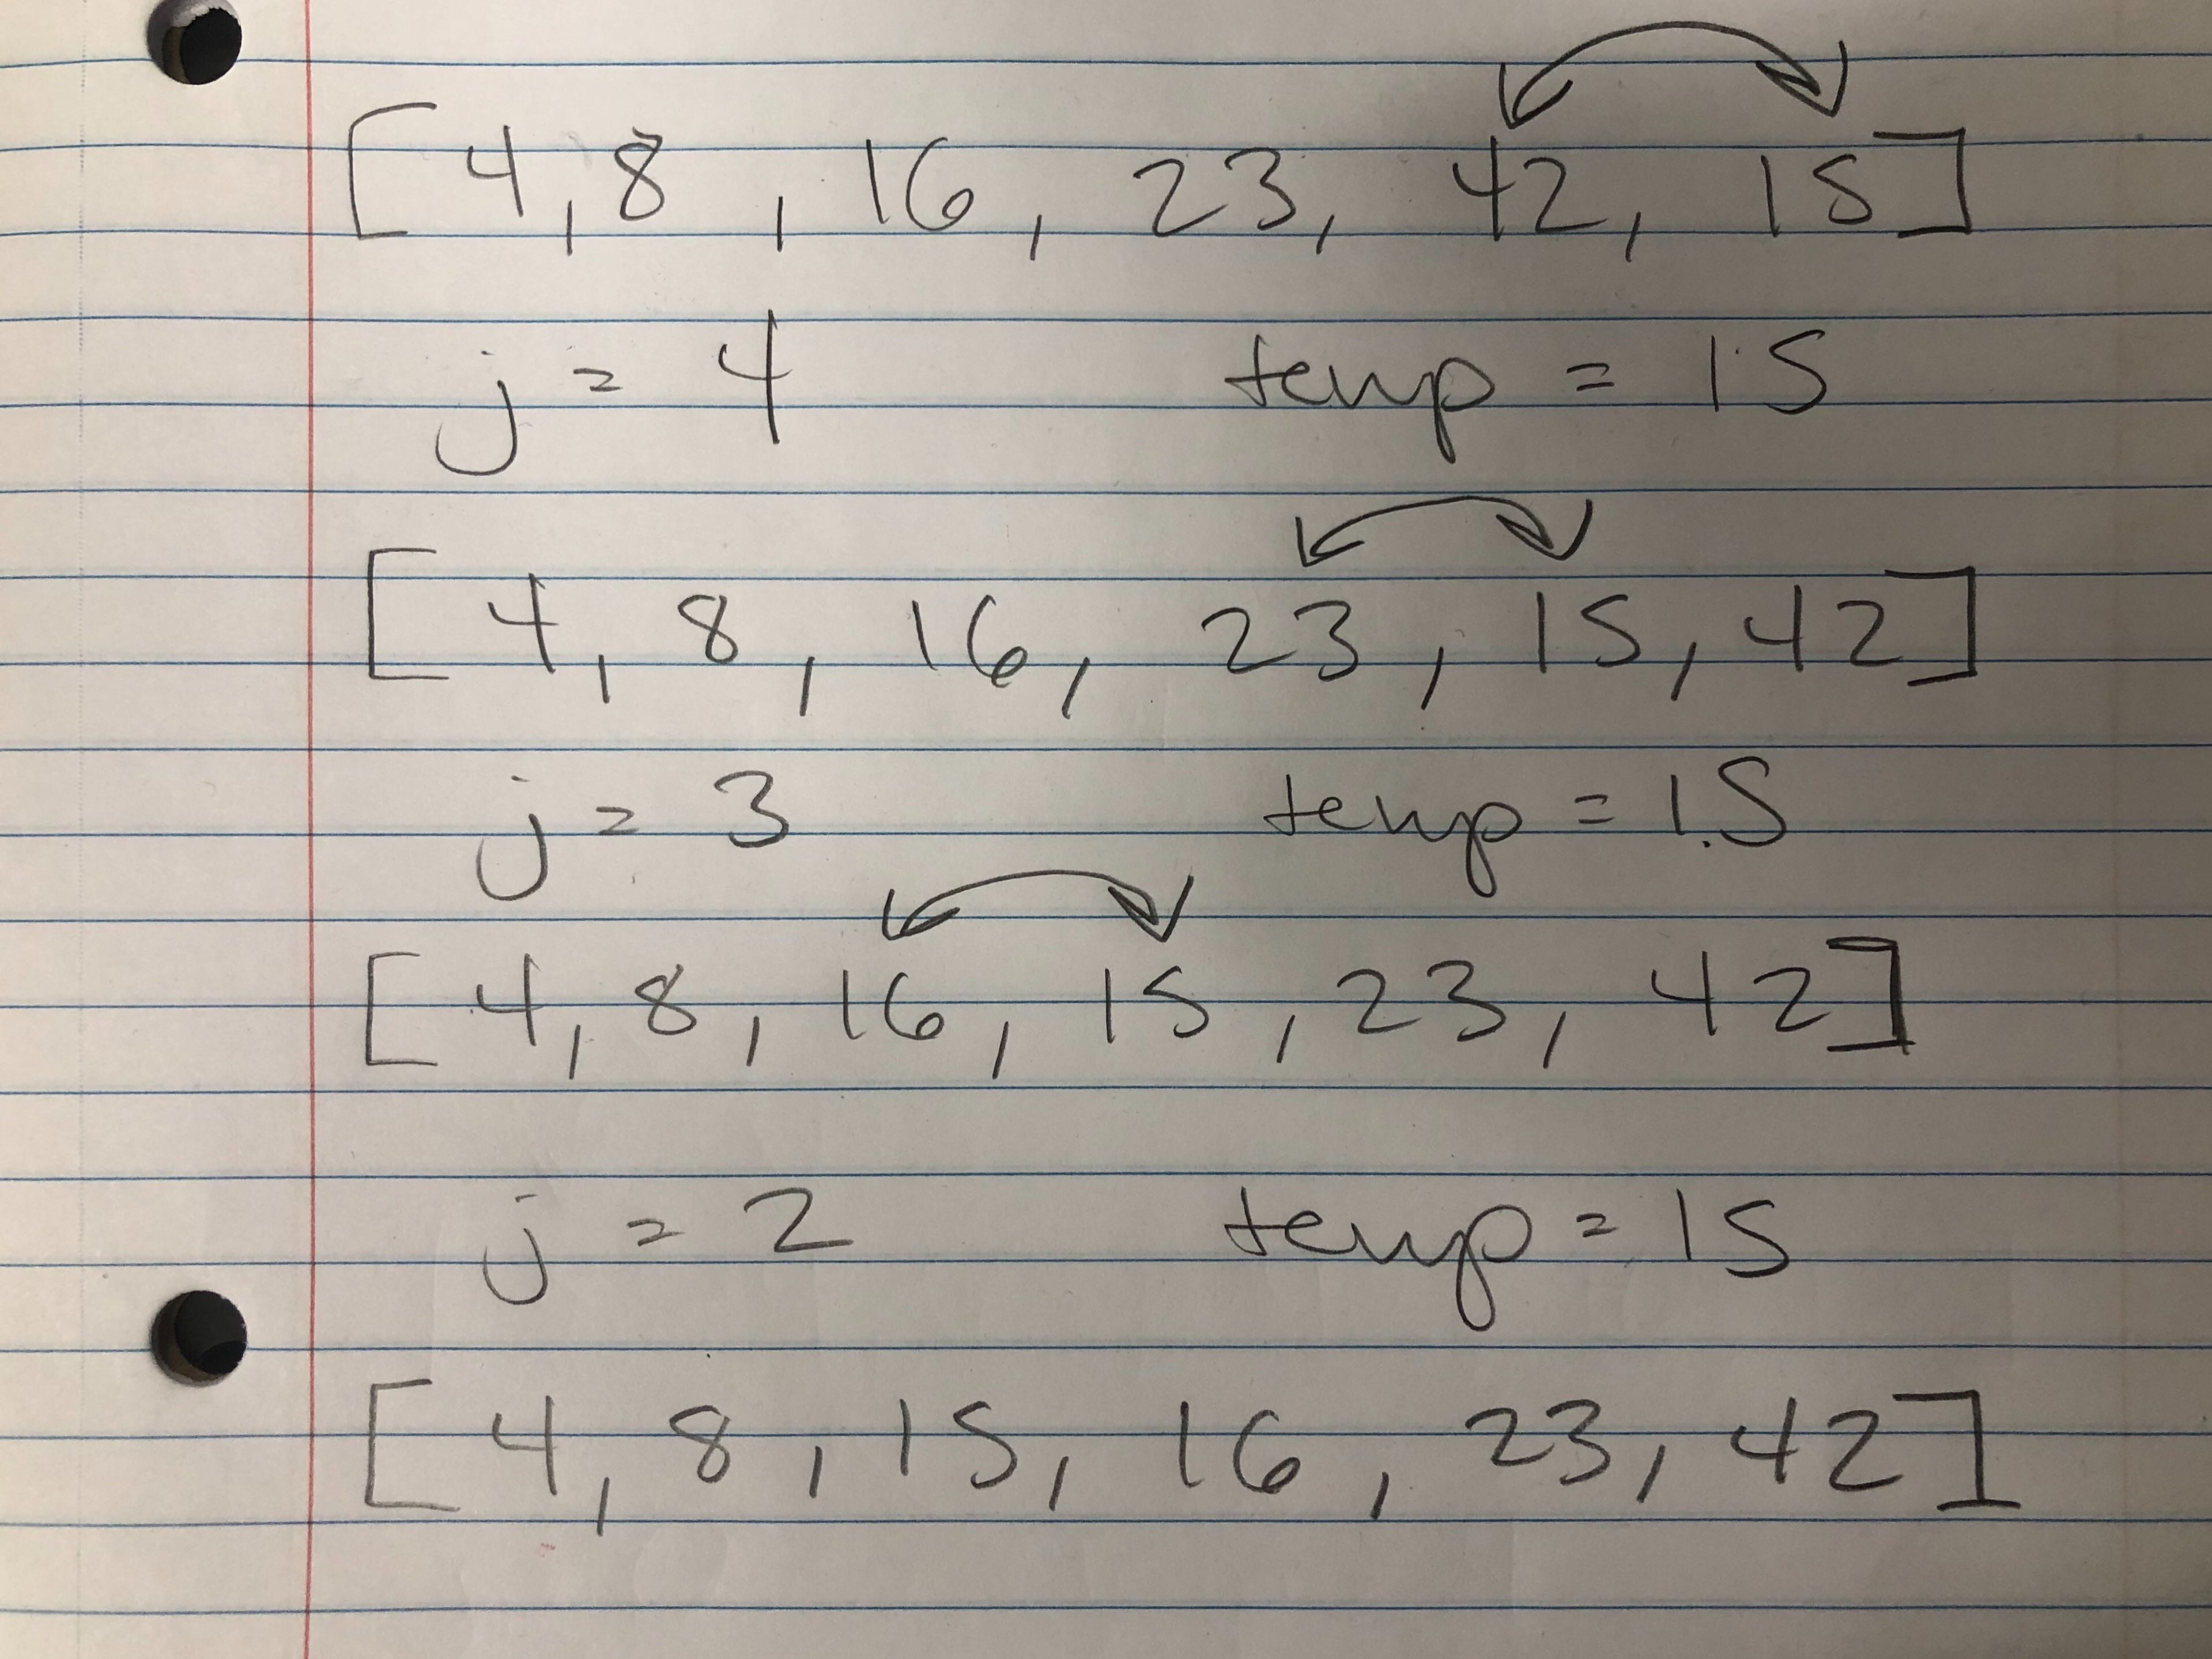 [4, 8, 16, 23, 42, 15]
j = 4 temp = 15
[4, 8, 16, 23, 15, 42]
j = 3 temp = 15
[4, 8, 16, 15, 23, 42]
j = 2 temp = 15
[4, 8, 15, 16, 23, 42]